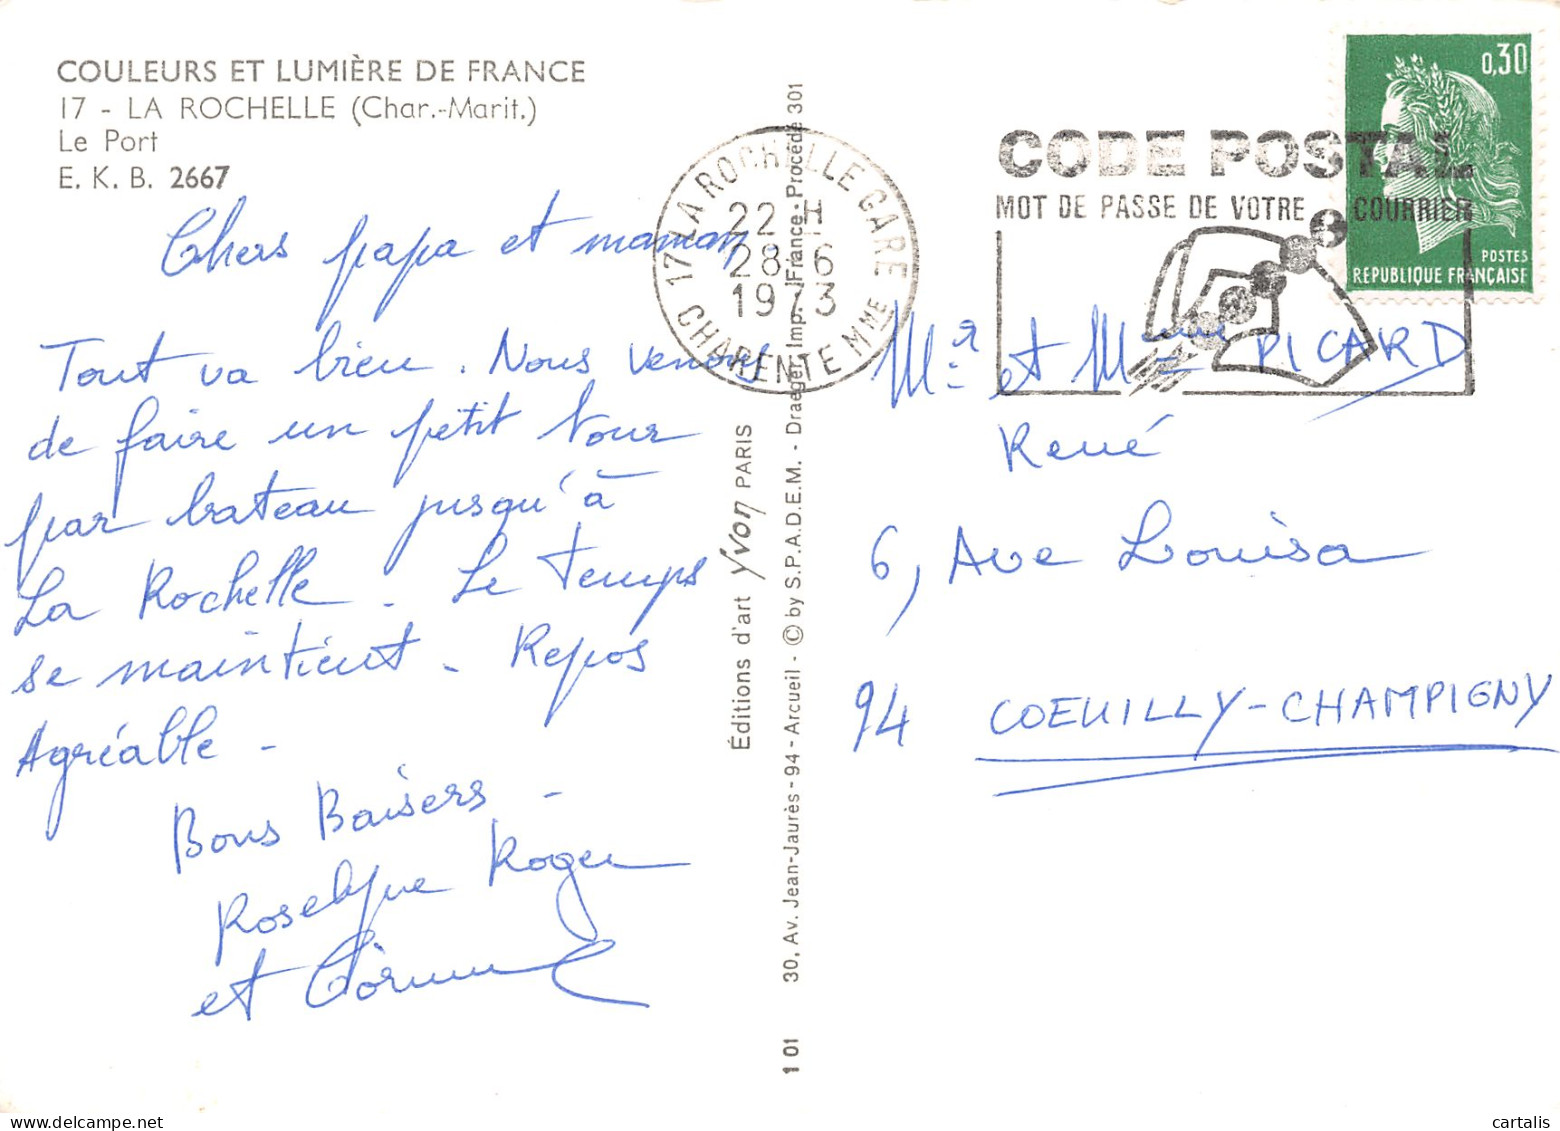 COULEURS ET LUMIÈRE DE FRANCE
17 - LA ROCHELLE (Char.-Marit.)
Le Port
E. K. B. 2667
Chers papa et maman,
Tout va bien. Nous venons
de faire un petit tour
par bateau jusqu'à
La Rochelle. Le temps
se maintient - Repos
Agréable -
Bons Baisers -
Roselyne Roger
et
17 LA ROCHELLE GARE
22 H
28-6
1973
CHARENTE MME
Éditions d'art Yvon PARIS
1 01 30, Av. Jean-Jaurès - 94 - Arcueil - © by S.P.A.D.E.M. - Draeger, Imp. France - Procédé 301
CODE POSTAL
MOT DE PASSE DE VOTRE COURRIER
0,30
POSTES
REPUBLIQUE FRANÇAISE
Mr et Mme PICARD
René
6, Ave Louisa
94 COEUILLY-CHAMPIGNY
www.cartalis.com
cartalis